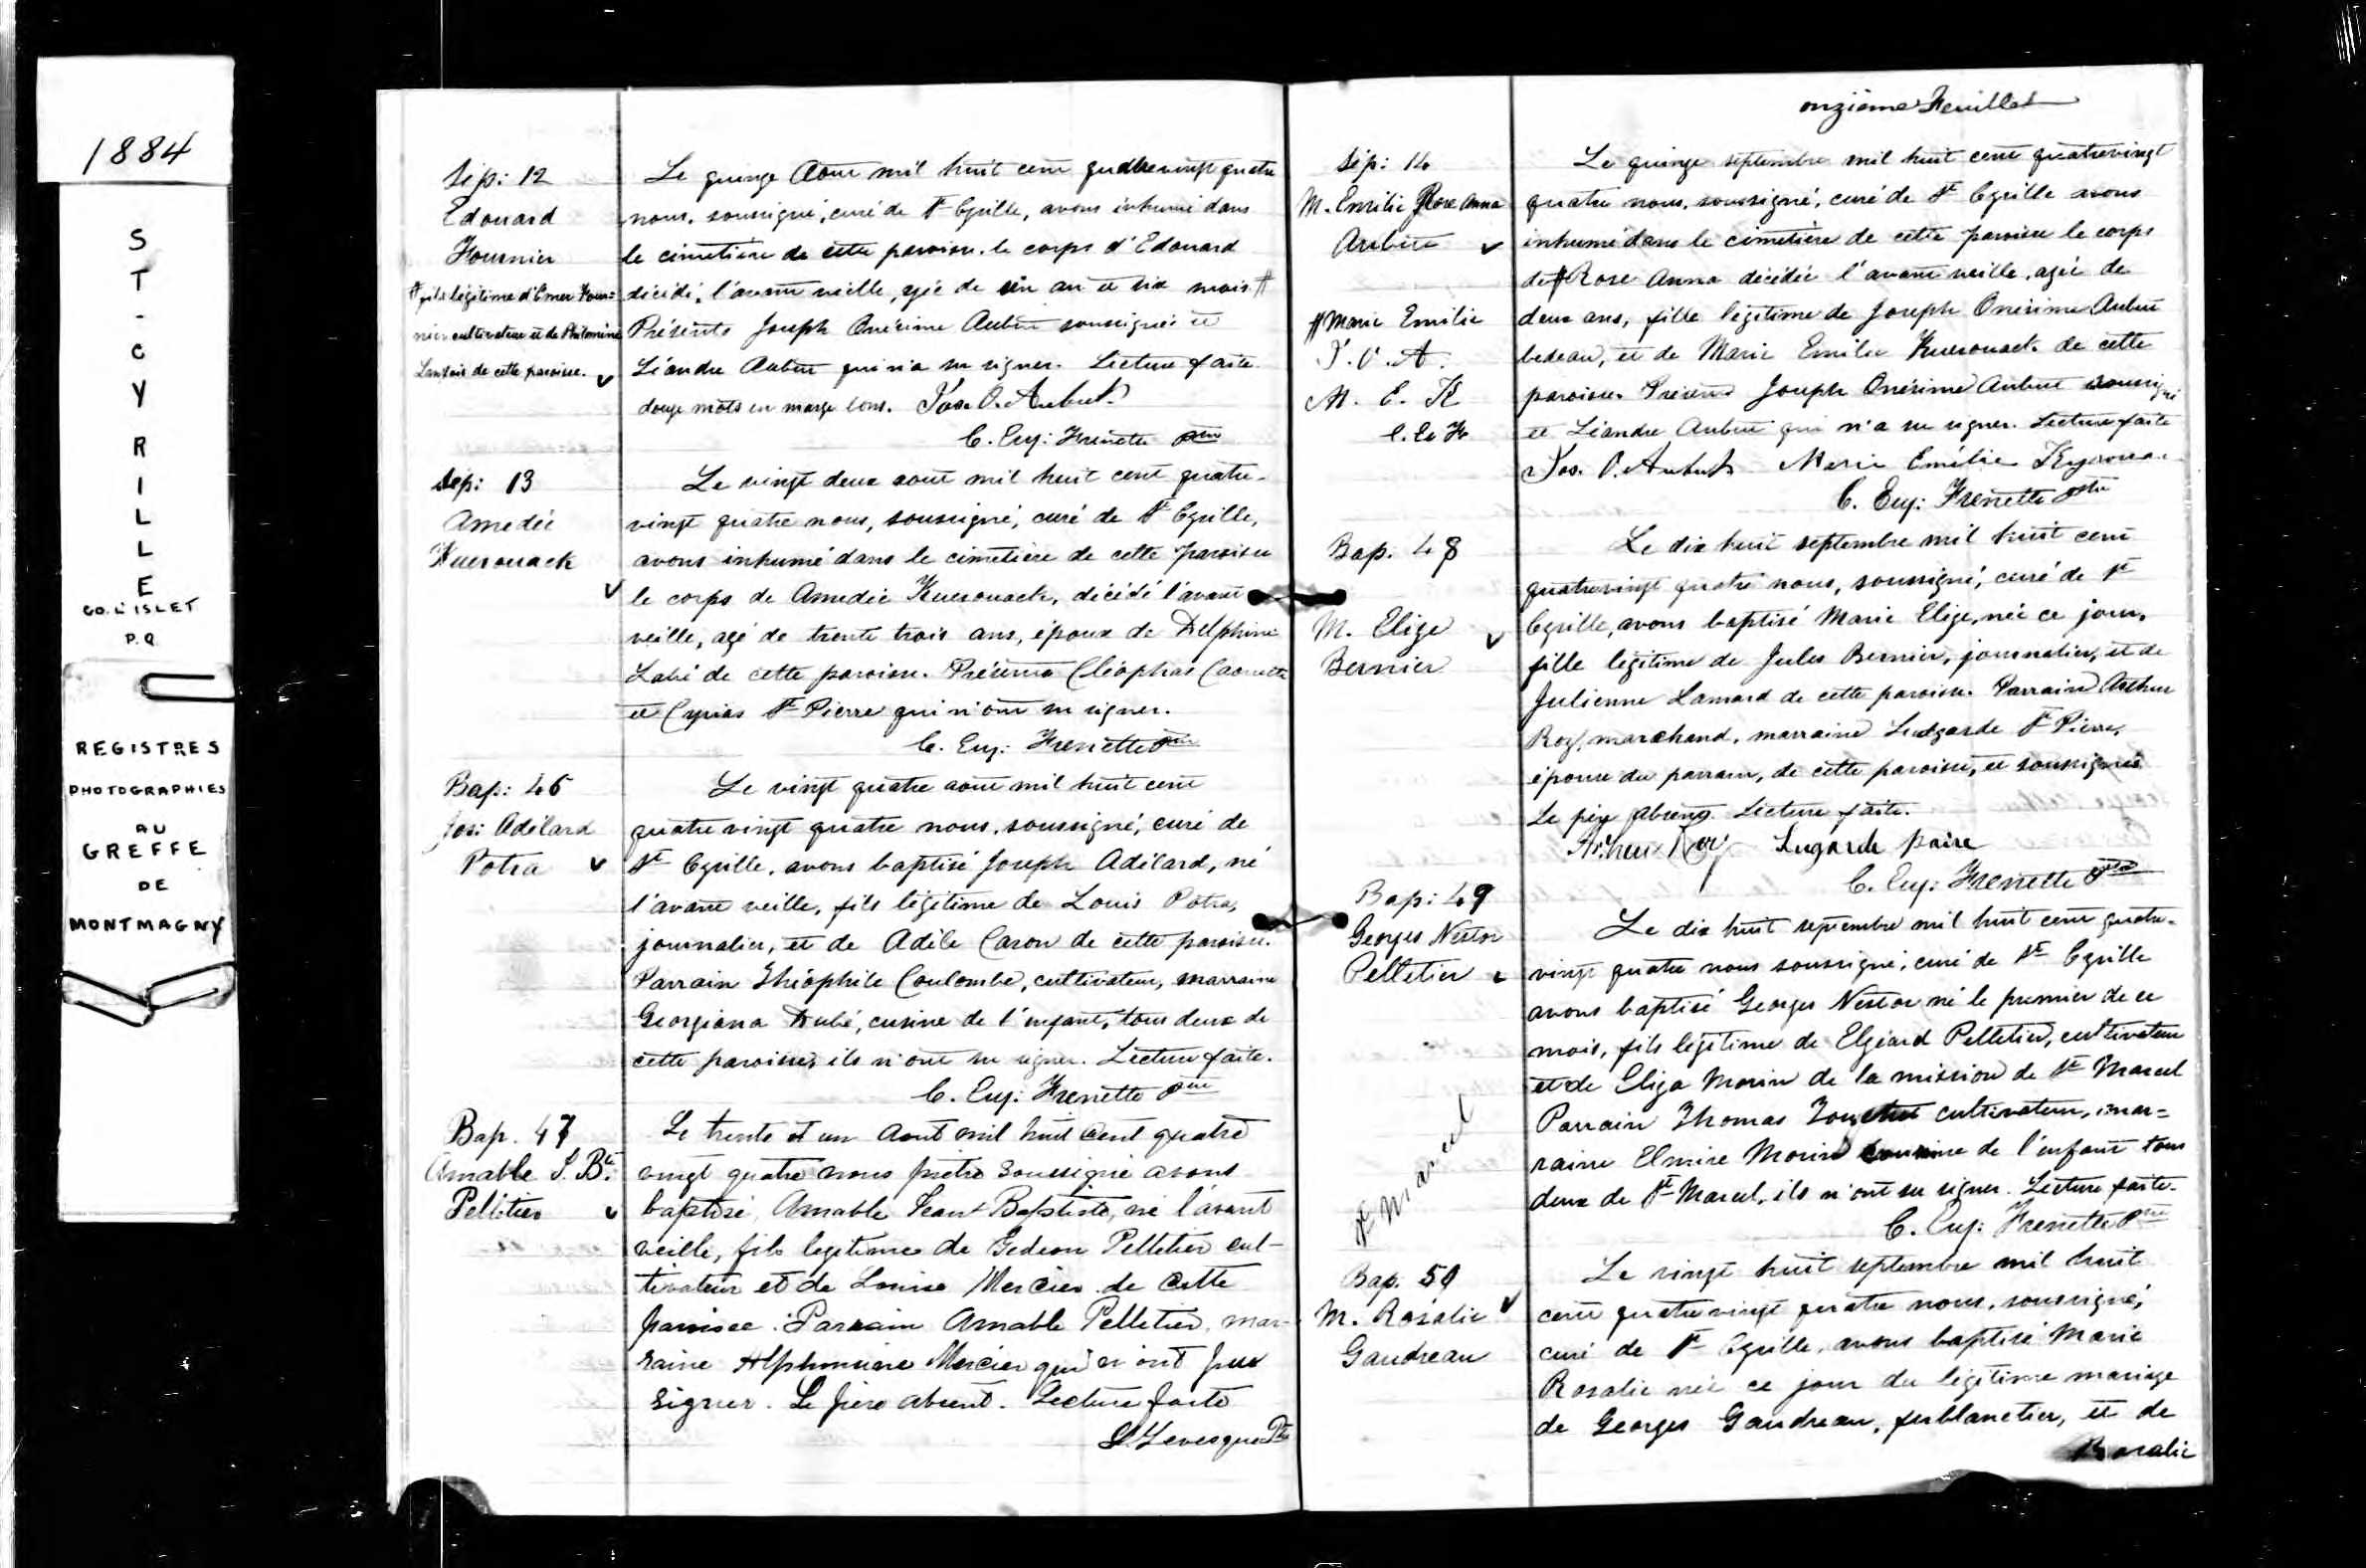 1884
ST-CYRILLE
CO. L'ISLET
P.Q.
REGISTRES
PHOTOGRAPHIES
AU
GREFFE
DE
MONTMAGNY
Sép: 12
Edouard
Fournier
# fils légitime d'Omer Four=
nier cultivateur et de Philomène
Langlois de cette paroisse.
Le quinze Aout mil huit cent quatrevingt quatre
nous, soussigné, curé de St Cyrille, avons inhumé dans
le cimetière de cette paroisse, le corps d'Edouard
décédé, l'avant veille, agée de un an et six mois #
Présents Joseph Onésime Aubut soussigné et
Léandre Aubut qui n'a su signer. Lecture faite.
douze mots en marge bons. Jos. O. Aubut
C. Eug: Frenette Ptre
Sep: 13
Amedée
Kuerouack
Le vingt deux aout mil huit cent quatre-
vingt quatre nous, soussigné, curé de St Cyrille,
avons inhumé dans le cimetière de cette paroisse
le corps de Amedée Kuerouack, décédé l'avant
veille, agé de trente trois ans, époux de Delphine
Labé de cette paroisse. Présents Cléophas Caouette
et Cyrias St Pierre qui n'ont su signer.
C. Eug: Frenette Ptre
Bap: 46
Jos: Adélard
Potra
Le vingt quatre aout mil huit cent
quatre vingt quatre nous, soussigné, curé de
St Cyrille, avons baptisé Joseph Adélard, né
l'avant veille, fils légitime de Louis Potra,
journalier, et de Adèle Caron de cette paroisse.
Parrain Théophile Coulombe, cultivateur, marraine
Georgiana Dubé, cusine de l'enfant, tous deux de
cette paroisse, ils n'ont su signer. Lecture faite.
C. Eug: Frenette Ptre
Bap. 47
Amable J. Bte
Pelletier
Le trente et un Aout mil huit Cent quatre
vingt quatre nous prêtre Soussigné avons
baptisé, Amable Jean Baptiste, né l'avant
veille, fils legitime de Gedeon Pelletier cul-
tivateur et de Louise Mercier de Cette
paroisse. Parrain Amable Pelletier, mar-
raine Alphonsine Mercier qui n'ont pus
signer. Le père absent. Lecture faite
Levesque Ptre
onzième Feuillet
Sép: 14
M. Emilie Rose Anna
Aubut
# Marie Emilie
J. O. A.
M. E. K
C. E. F.
Le quinze septembre mil huit cent quatrevingt
quatre nous, soussigné, curé de St Cyrille avons
inhumé dans le cimetière de cette paroisse le corps
de # Rose Anna décédée l'avant veille, agée de
deux ans, fille légitime de Joseph Onésime Aubut
bedeau, et de Marie Emilie Kuerouack de cette
paroisse. Présents Joseph Onésime Aubut soussigné
et Léandre Aubut qui n'a su signer. Lecture faite
Jos. O. Aubut Marie Emélie
C. Eug: Frenette Ptre
Bap. 48
M. Elize
Bernier
Le dix huit septembre mil huit cent
quatrevingt quatre nous, soussigné, curé de St
Cyrille, avons baptisé Marie Elize, née ce jour,
fille légitime de Jules Bernier, journalier, et de
Julienne Lamard de cette paroisse. Parrain Arthur
Roy, marchand, marraine Lutgarde St Pierre,
épouse du parrain, de cette paroisse, et soussignés
Le père absent. Lecture faite.
Arthur Roy Lugarde
C. Eug: Frenette Ptre
Bap: 49
Georges Nestor
Pelletier
St Marcel
Le dix huit septembre mil huit cent quatre-
vingt quatre nous soussigné, curé de St Cyrille
avons baptisé Georges Nestor né le premier de ce
mois, fils légitime de Elzéard Pelletier, cultivateur
et de Eliza Morin de la mission de St Marcel
Parrain Thomas cultivateur, mar=
raine Elmire Morin cousine de l'enfant tous
deux de St Marcel, ils n'ont su signer. Lecture faite.
C. Eug: Frenette Ptre
Bap. 50
M. Rosalie
Gaudreau
Le vingt huit septembre mil huit
cent quatrevingt quatre nous, soussigné,
curé de St Cyrille, avons baptisé Marie
Rosalie née ce jour du légitime mariage
de Georges Gaudreau, ferblantier, et de
Rosalie